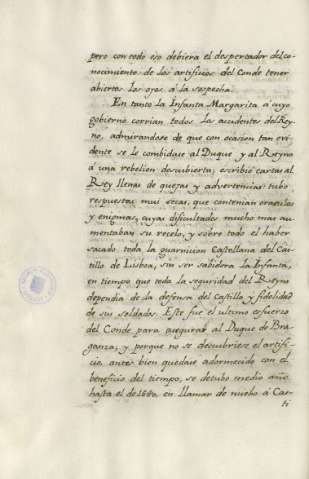 pero con todo eso debiera el despertador del co-
nocimiento de los artificios del Conde tener
abiertos los ojos à la sospecha.
En tanto la Infanta Margarita á cuyo
gobierno corrian todos los accidentes del Rey-
no, admirandose de que con ocasion tan evi-
dente se le combidase al Duque y al Reyno
á una rebelion descubierta, escribió cartas al
Rey llenas de quejas y advertencias: tubo
respuestas mui secas, que contenian oraculos
y enigmas, cuyas dificultades mucho mas au-
mentaban su recelo, y sobre todo el haber
sacado toda la guarnicion Castellana del Cas-
tillo de Lisboa, sin ser sabidora la Infanta,
en tiempo que toda la seguridad del Reyno
dependia de la defensa del Castillo y fidelidad
de sus soldados. Este fue el ultimo esfuerzo
del Conde para asegurar al Duque de Bra-
ganza; y porque no se descubriese el artifi-
cio, antes bien quedase adormecido con el
beneficio del tiempo, se detubo medio año
hasta el de 1640, en llamar de nuebo á Cas-
ti